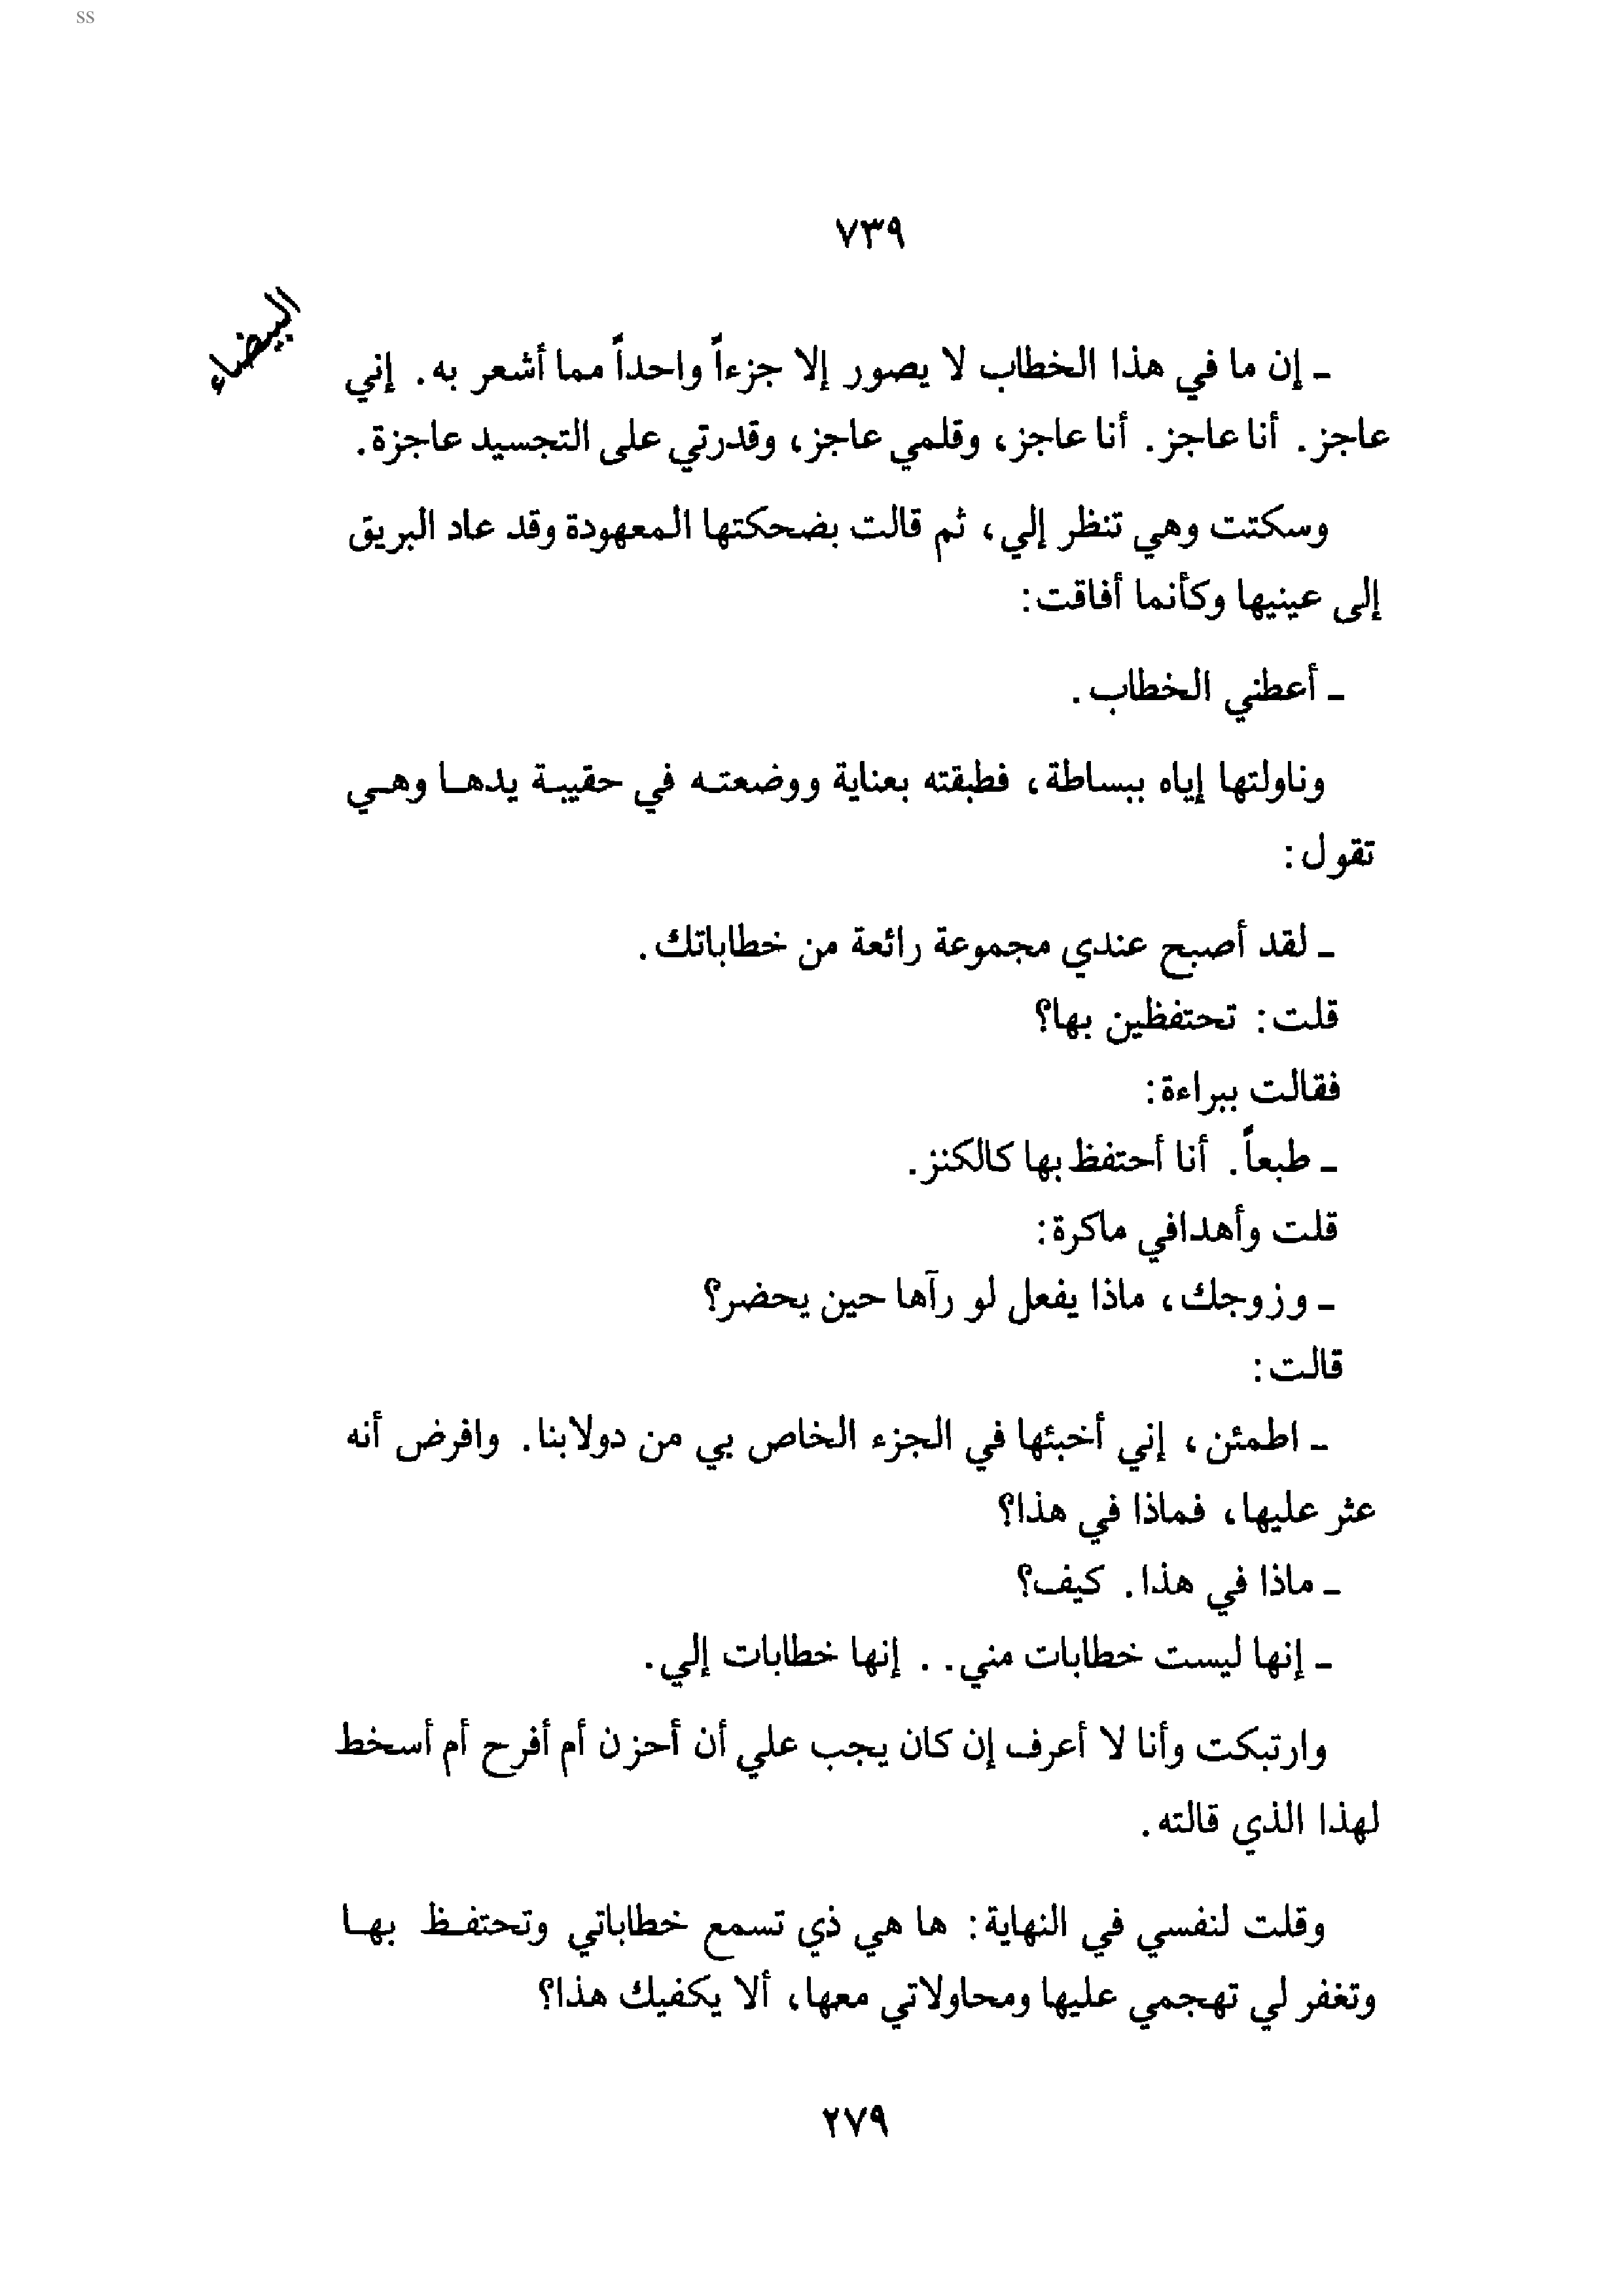 ss
٧٣٩
البيضاء
ـ إن ما في هذا الخطاب لا يصور إلا جزءاً واحداً مما أشعر به. إني
عاجز. أنا عاجز. أنا عاجز، وقلمي عاجز، وقدرتي على التجسيد عاجزة.
وسكتت وهي تنظر إلي، ثم قالت بضحكتها المعهودة وقد عاد البريق
إلى عينيها وكأنما أفاقت:
ـ أعطني الخطاب.
وناولتها إياه ببساطة، فطبقته بعناية ووضعته في حقيبة يدها وهي
تقول:
ـ لقد أصبح عندي مجموعة رائعة من خطاباتك.
قلت: تحتفظين بها؟
فقالت ببراءة:
ـ طبعاً. أنا أحتفظ بها كالكنز.
قلت وأهدافي ماكرة:
ـ وزوجك، ماذا يفعل لو رآها حين يحضر؟
قالت:
ـ اطمئن، إني أخبئها في الجزء الخاص بي من دولابنا. وافرض أنه
عثر عليها، فماذا في هذا؟
ـ ماذا في هذا. كيف؟
ـ إنها ليست خطابات مني.. إنها خطابات إلي.
وارتبكت وأنا لا أعرف إن كان يجب علي أن أحزن أم أفرح أم أسخط
لهذا الذي قالته.
وقلت لنفسي في النهاية: ها هي ذي تسمع خطاباتي وتحتفظ بها
وتغفر لي تهجمي عليها ومحاولاتي معها، ألا يكفيك هذا؟
٢٧٩